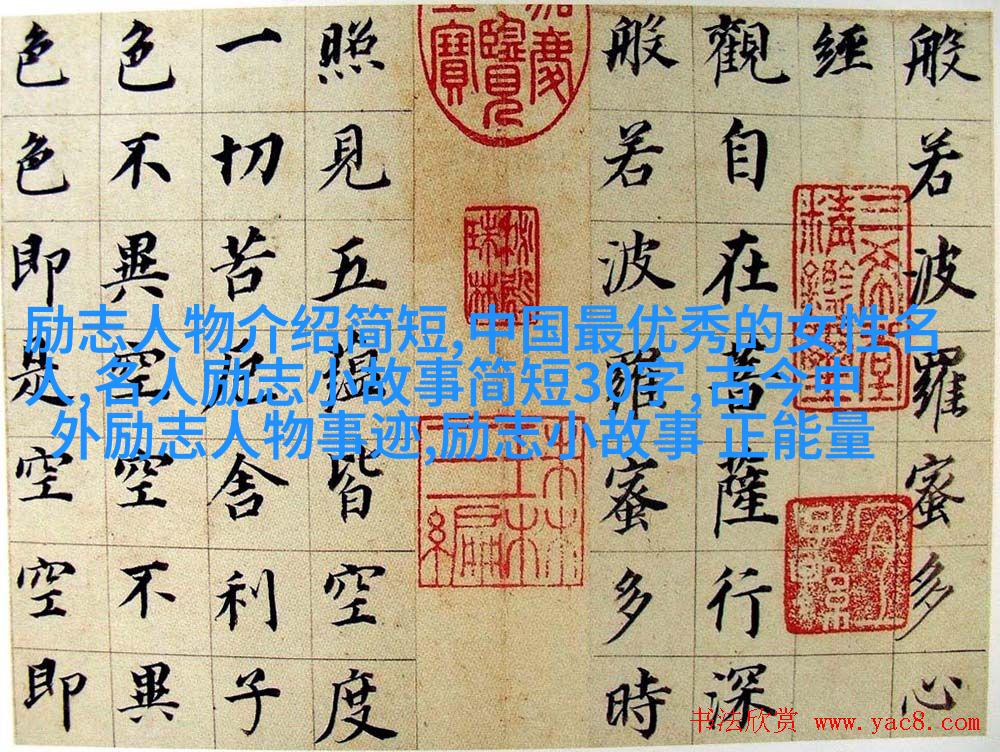 般若波羅蜜多心
經
觀自在菩薩行深
般若波羅蜜多時
照見五蘊皆空度
一切苦厄舍利子
色不異空空不異
色色即是空空即
励志人物介绍简短,中国最优秀的女性名
人,名人励志小故事简短30字,古今中
外励志人物事迹,励志小故事 正能量
书法欣赏 www.yac8.com